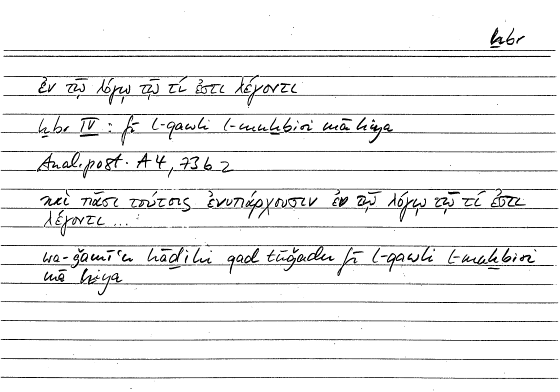 ḫbr
ἐν τῷ λόγῳ τῷ τί ἐστι λέγοντι
ḫbr IV : fī l-qawli l-muḫbiri mā hiya
Anal. post. A 4, 73b2
καὶ πᾶσι τούτοις ἐνυπάρχουσιν ἐν τῷ λόγῳ τῷ τί ἐστι
λέγοντι ...
wa-ǧamīʿu hāḏihi qad tūǧadu fī l-qawli l-muḫbiri
mā hiya